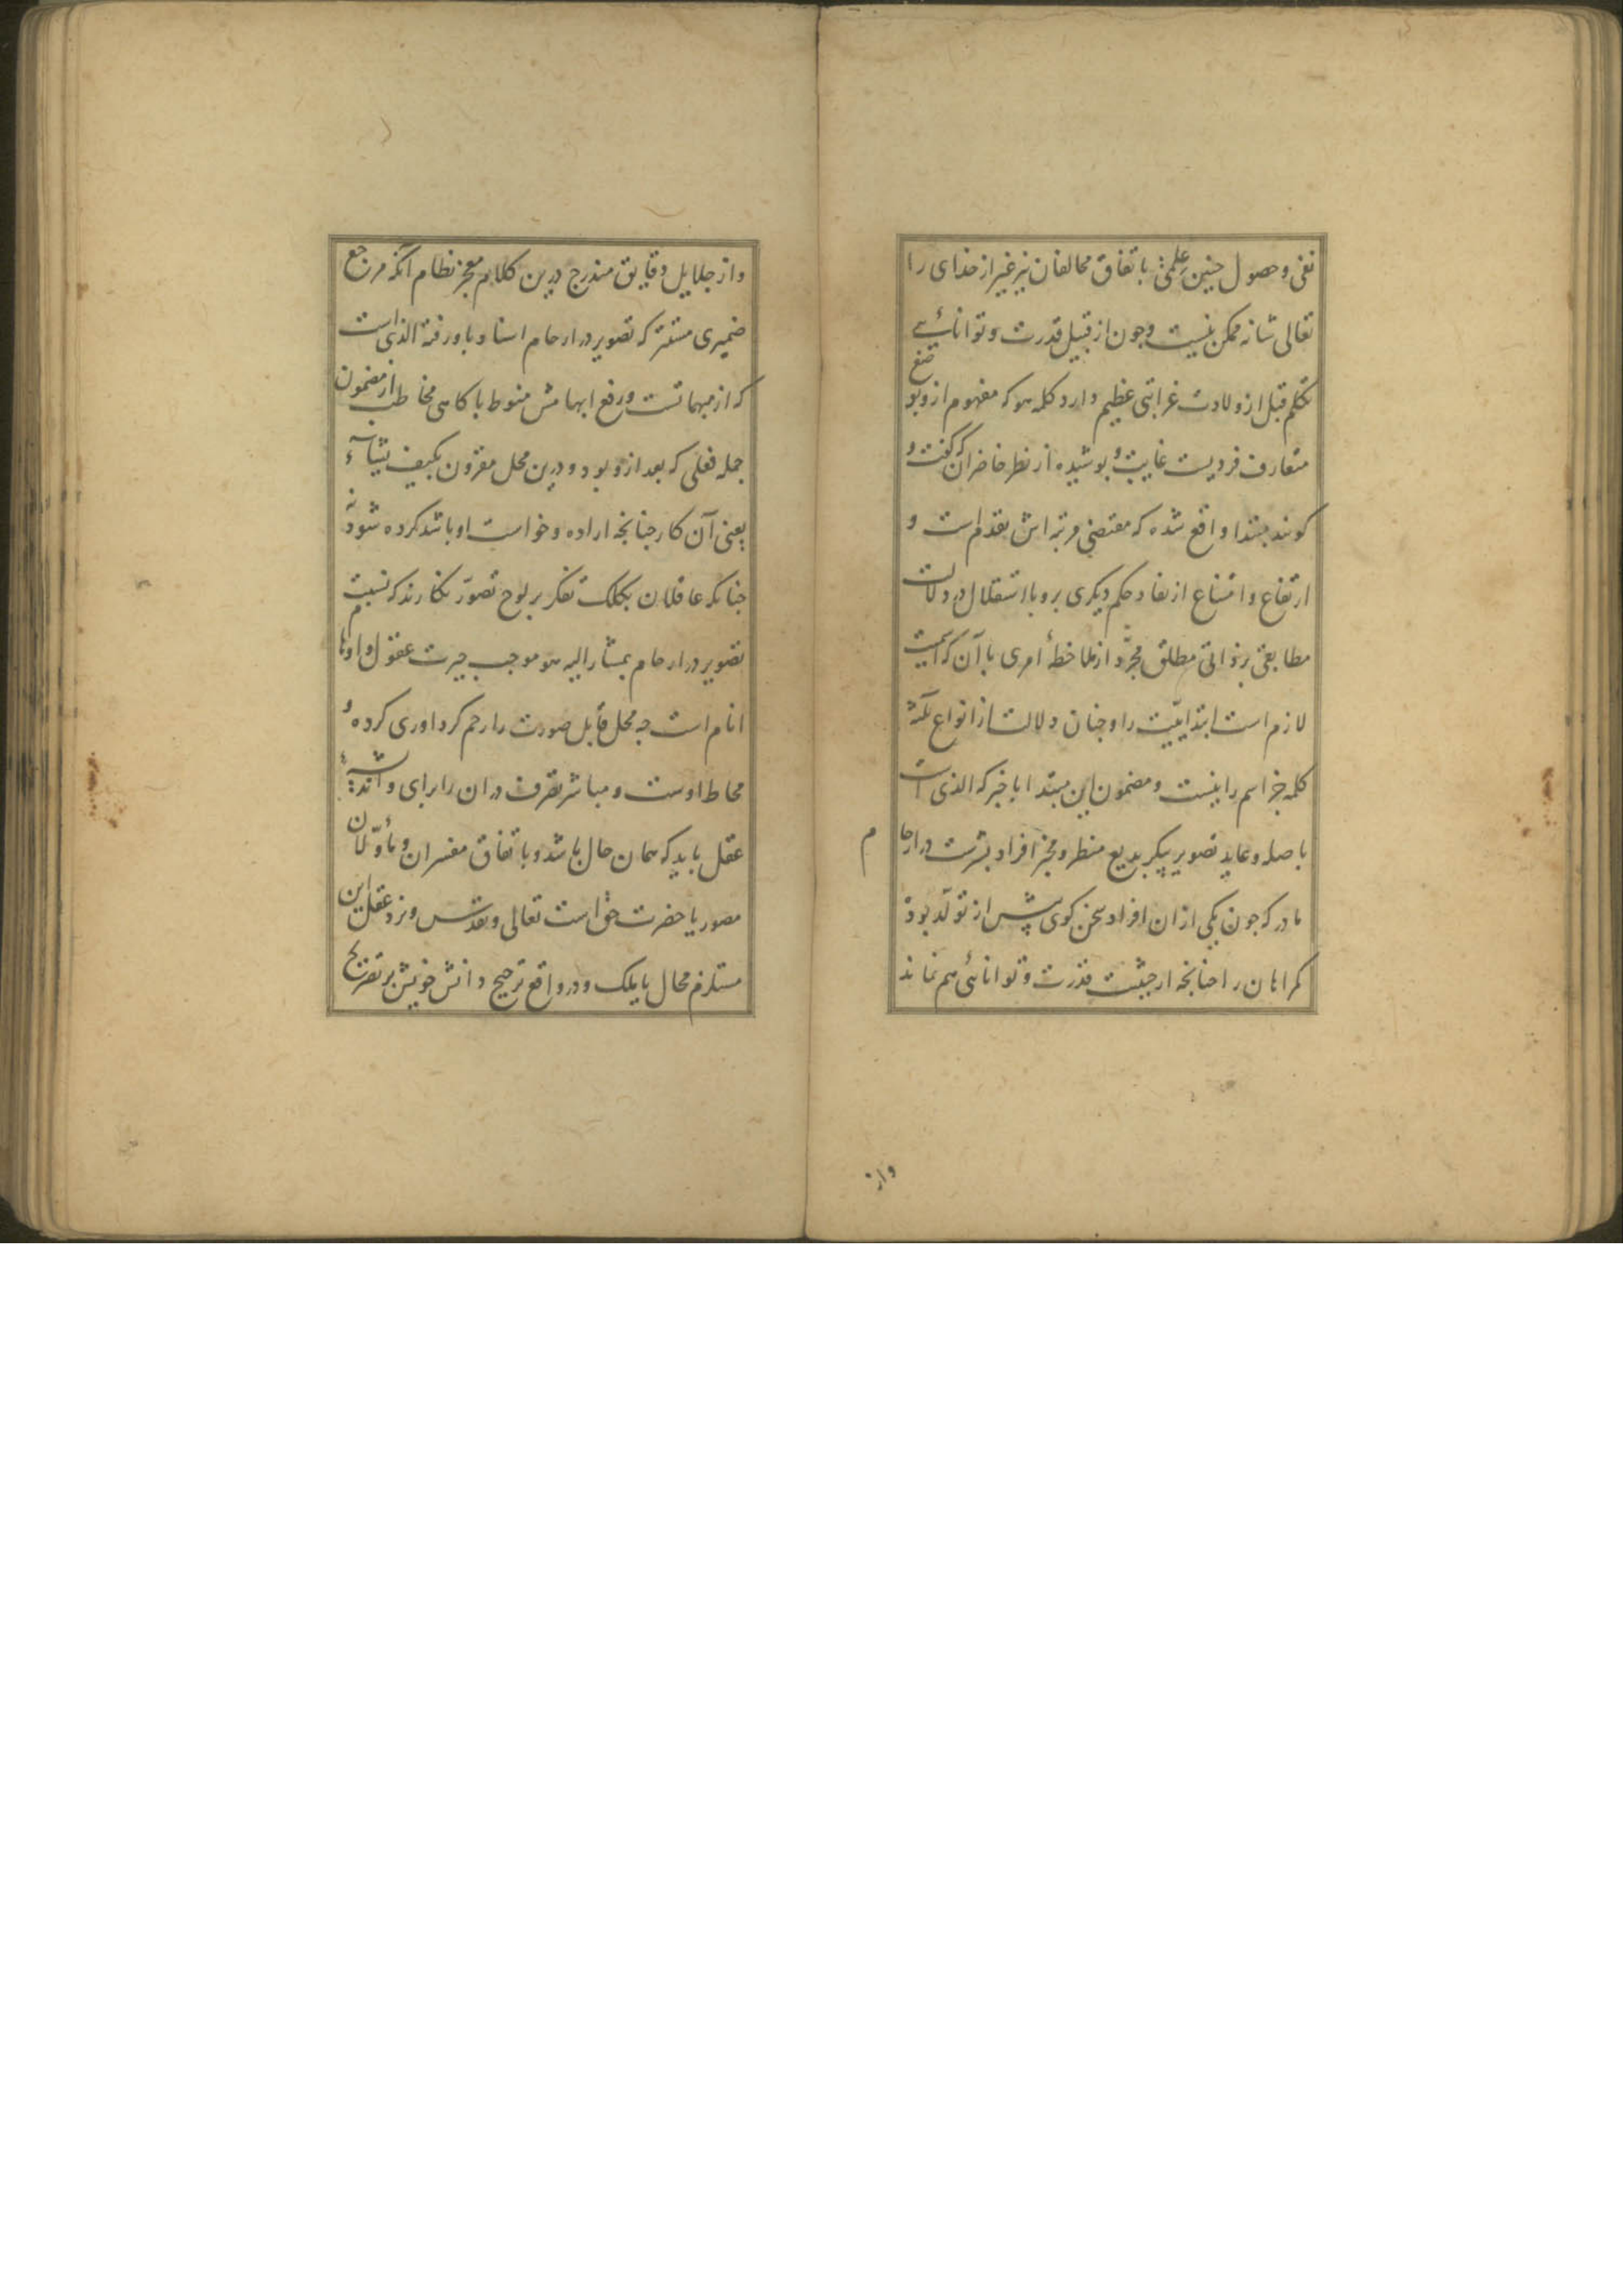 نفی و حصول چنین علمی باتفاق مخالفان نیز غیر از خدای را
تعالی شانه ممکن نیست و چون از قبیل قدرت و توانایی
تکلم قبل از ولادت غرابتی عظیم دارد کلمه هو که مفهوم ازو بو
متعارف فردیست غایب و پوشیده از نظر حاضران که گفت و
کویند مبتدا واقع شده که مقتضی مرتبه اش تقدم است و
ارتفاع و امتناع از نفاد حکم دیکری برو با استقلال در دلالت
مطابقی بر ذاتی مطلق مجرّد از ملاحظهٔ امری با آن که اسمیت
لازم است ابتداییّت را و چنان دلالت از انواع ثلثه
کلمه جز اسم را نیست و مضمون این مبتدا با خبر که الذی است
با صله و عاید تصویر پیکر بدیع منظر و مخبر افراد بشرست در ارحام
مادر که چون یکی از ان افراد سخن کوی پیش از تولّد بود
کمراهان را چنانچه از حیثیت قدرت و توانائی هم نماند
واز
واز جلایل دقایق مندرج درین کلام معجز نظام آنکه مرجع
ضمیری مستتر که تصویر در ارحام اسناد باو رفته الذی است
که از مبهماتست و رفع ابهامش منوط باکاهی مخاطب از مضمون
جمله فعلی که بعد ازو بود و درین محل مقرون بکیف یشآء
یعنی آن کار چنانچه اراده و خواست او باشد کرده شود نه
چنانکه عاقلان بکلک تفکر بر لوح تصوّر نکارند که نسبت
تصویر در ارحام بمشار الیه هو موجب حیرت عقول و اوهام
انام است چه محل قابل صورت را رحم کرد اوری کرده و
محاط اوست و مباشر تصرف در ان را برای و اندیشه
عقل باید که همان حال باشد و باتفاق مفسران و مأوّلان
مصور یا حضرت حق است تعالی و تقدس و نزد عقل این
مستلزم محال یا ملک و در واقع ترجیح دانش خویش بر تصریح